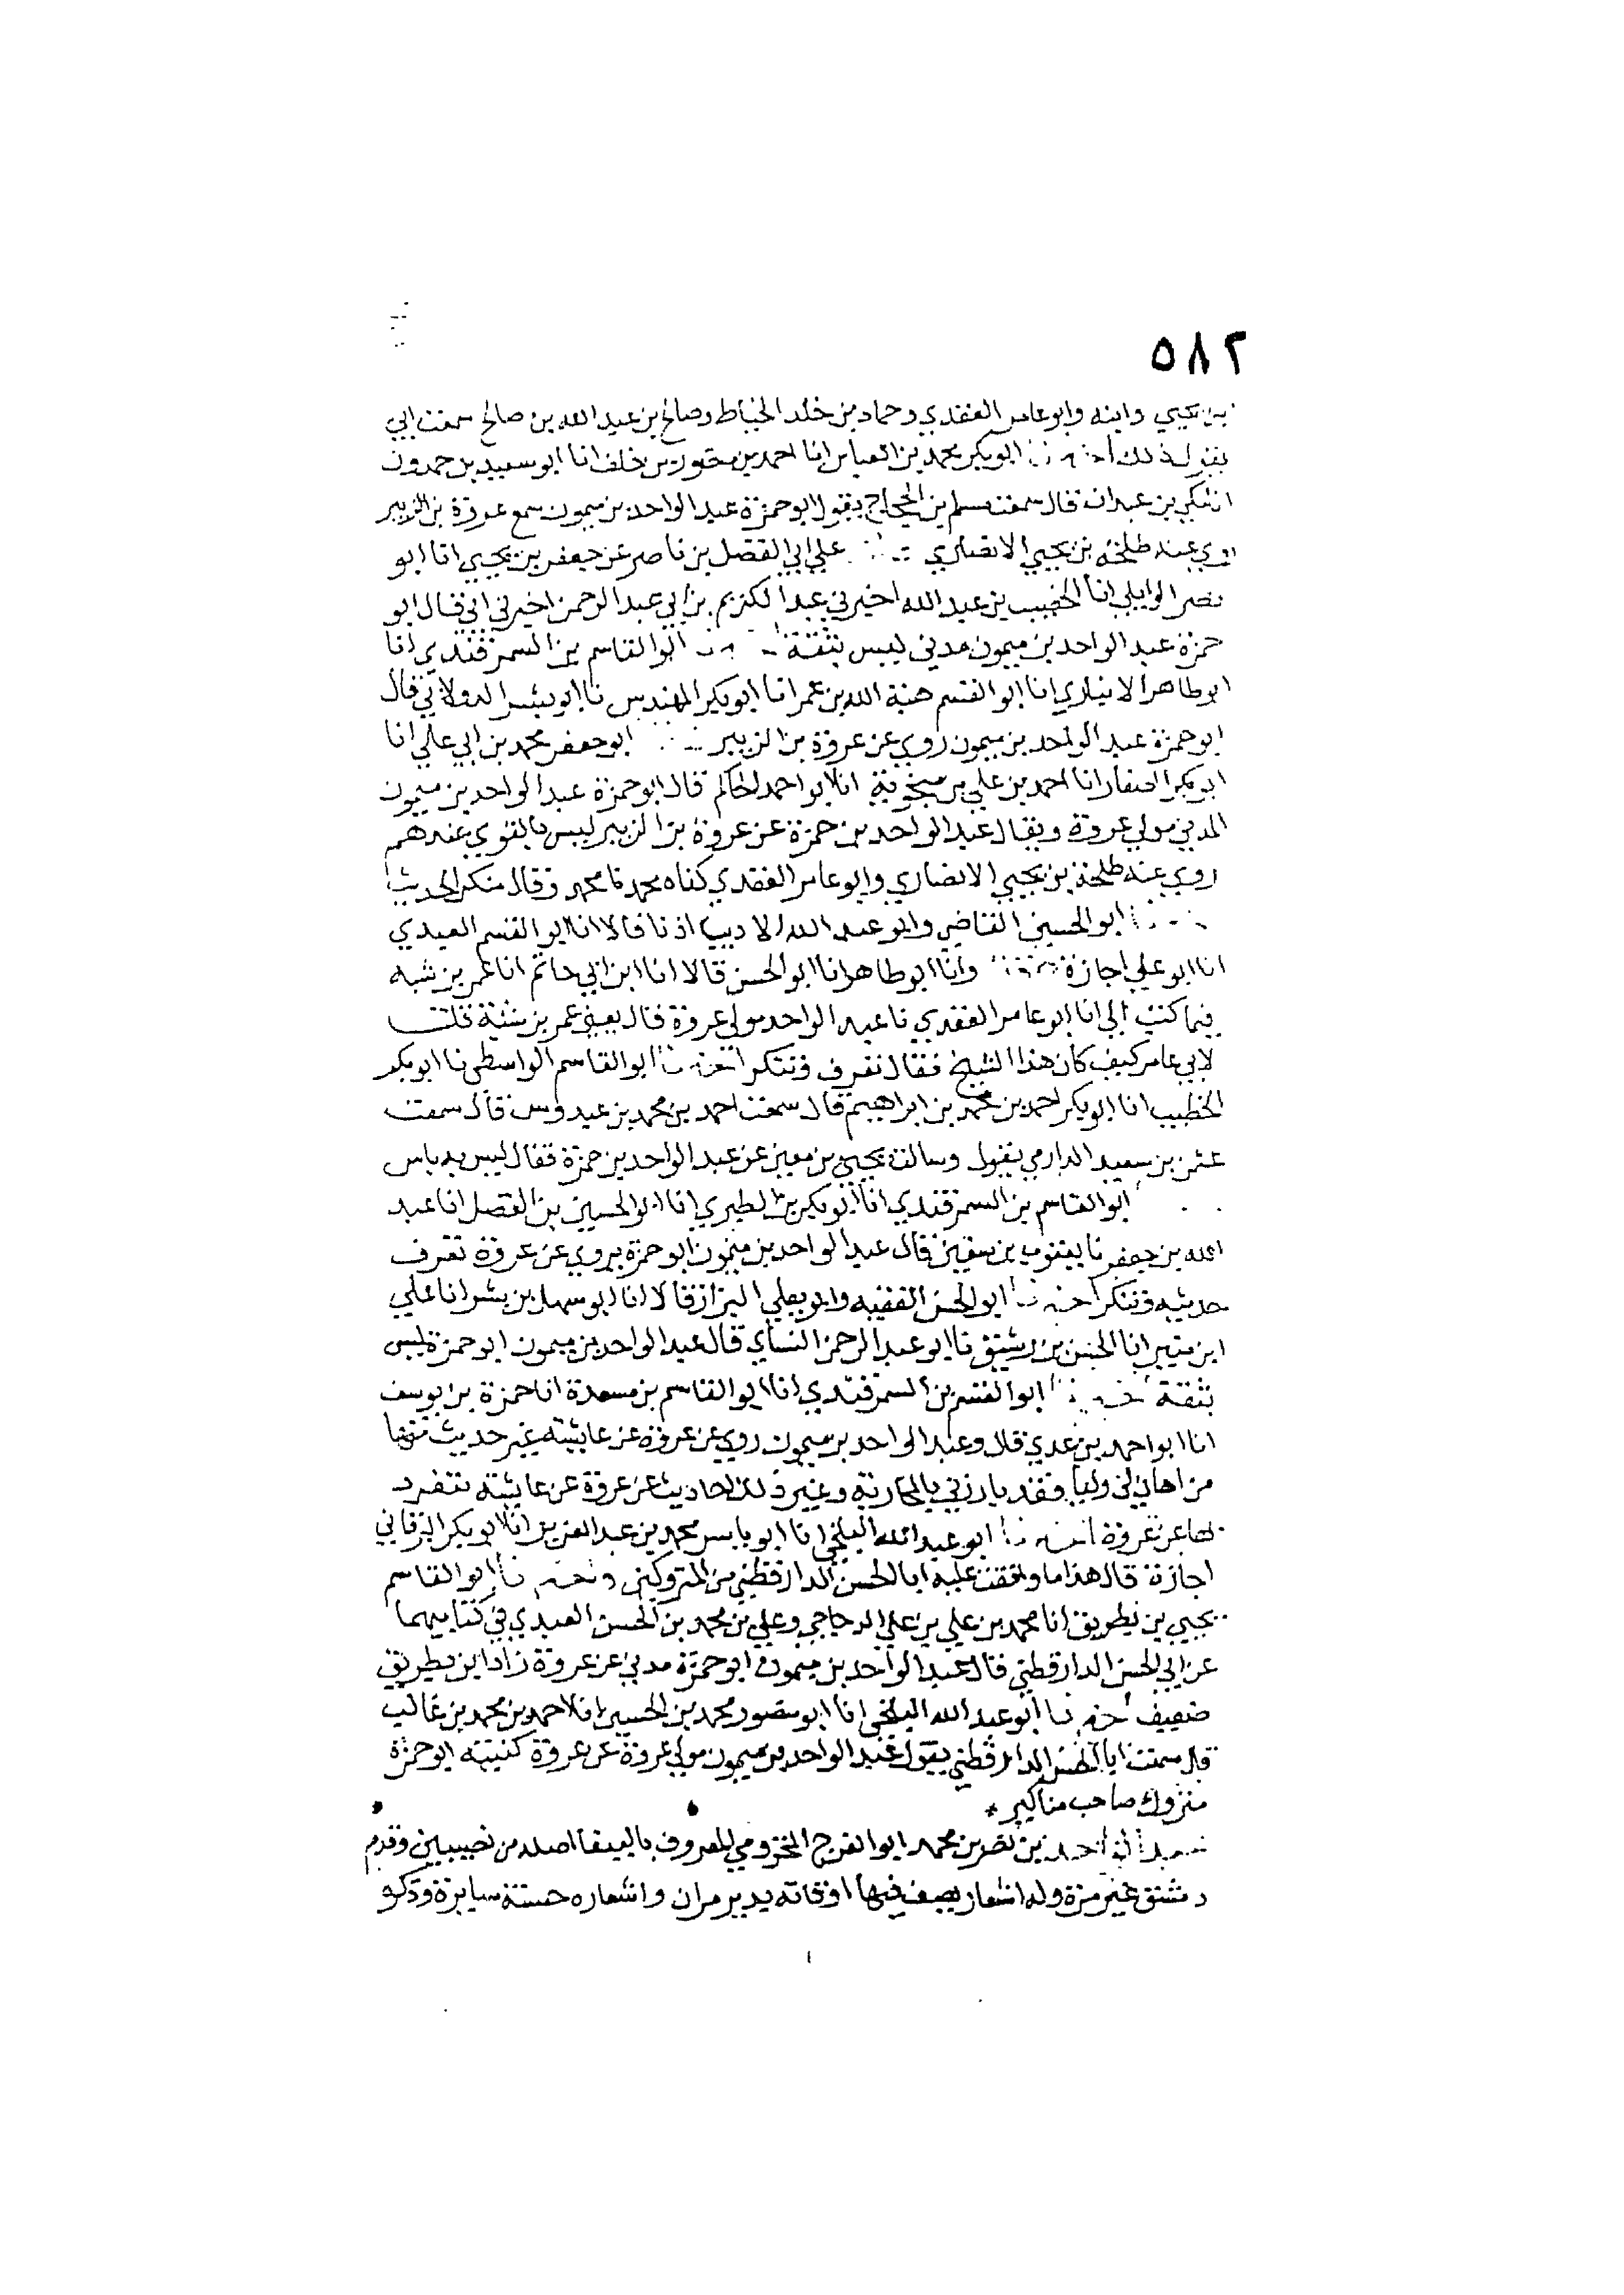 ٥٨٢
بن يحيي وابنه وابو عامر العقدي وحماد بن خلد الخياط وصالح بن عبد الله بن صالح سمعت ابي
يقول ذلك ابو بكر محمد بن العباس انا احمد بن منصور بن خلف انا ابو سعيد بن حمدون
انا مكي بن عبدان قال سمعت مسلم بن الحجاج يقول ابو حمزة عبد الواحد بن ميمون سمع عروة بن الزبير
روي عنه طلحة بن يحيي الانصاري علي ابي الفضل بن ناصر عن جعفر بن يحيي انا ابو
نصر الوايلي انا الخصيب بن عبد الله اخبرني عبد الكريم بن ابي عبد الرحمن اخبرني ابي قال ابو
حمزة عبد الواحد بن ميمون مدني ليس بثقة ابو القاسم بن السمرقندي انا
ابو طاهر الانباري انا ابو القسم هبة الله بن عمر انا ابو بكر المهندس نا ابو بشر الدولابي قال
ابو حمزة عبد الواحد بن ميمون روي عن عروة بن الزبير ابو جعفر محمد بن ابي علي انا
ابو بكر الصفار انا احمد بن علي بن منجوية انا ابو احمد الحاكم قال ابو حمزة عبد الواحد بن ميمون
المدني مولي عروة ويقال عبد الواحد بن حمزة عن عروة بن الزبير ليس بالقوي عندهم
روي عنه طلحة بن يحيي الانصاري وابو عامر العقدي كناه محمد نا محمد وقال منكر الحديث
ابو الحسين القاضي وابو عبد الله الاديب اذنا قالا انا ابو القسم العبدي
انا ابو علي اجازة وانا ابو طاهر انا ابو الحسن قالا انا ابن ابي حاتم انا عمر بن شبه
فيما كتب الي انا ابو عامر العقدي نا عبد الواحد مولي عروة قال يعني عمر بن شبة قلت
لابي عامر كيف كان هذا الشيخ فقال تعرف وتنكر ابو القاسم الواسطي نا ابو بكر
الخطيب انا ابو بكر احمد بن محمد بن ابراهيم قال سمعت احمد بن محمد بن عبدوس قال سمعت
عثمن بن سعيد الدارمي يقول وسالت يحيي بن معين عن عبد الواحد بن حمزة فقال ليس به باس
ابو القاسم بن السمرقندي انا ابو بكر بن الطبري انا ابو الحسين بن الفضل انا عبد
الله بن جعفر نا يعقوب بن سفين قال عبد الواحد بن ميمون ابو حمزة يروي عن عروة تعرف
حديثه وتنكر ابو الحسن الفقيه وابو يعلي البزاز قالا انا ابو سهل بن بشر انا علي
ابن منير انا الحسن بن رشيق نا ابو عبد الرحمن النساي قال عبد الواحد بن ميمون ابو حمزة ليس
بثقة ابو القسم بن السمرقندي انا ابو القاسم بن مسعدة انا حمزة بن يوسف
انا ابو احمد بن عدي قال وعبد الواحد بن ميمون روي عن عروة عن عايشة غير حديث منها
من اهان لي وليا فقد بارزني بالمحاربة وغير ذلك احاديث عن عروة عن عايشة تتفرد
بها عن عروة ابو عبد الله البلخي انا ابو ياسر محمد بن عبد العزيز انا ابو بكر البرقاني
اجازة قال هذا ما وافقت عليه ابا الحسن الدارقطني من المتروكين ابو القاسم
يحيي بن بطريق انا محمد بن علي بن علي الدجاجي وعلي بن محمد بن الحسن العبدي في كتابيهما
عن ابي الحسن الدارقطني قال عبد الواحد بن ميمون ابو حمزة مدني عن عروة زاد ابن بطريق
ضعيف ابو عبد الله البلخي انا ابو منصور محمد بن الحسين انا احمد بن محمد بن غالب
قال سمعت ابا الحسن الدارقطني يقول عبد الواحد بن ميمون مولي عروة عن عروة كنيته ابو حمزة
متروك صاحب مناكير
عبد الواحد بن نصر بن محمد ابو الفرج المخزومي المعروف بالببغا اصله من نصيبين وقدم
دمشق غير مرة وله اشعار يصف فيها اوقاته بدير مران واشعاره حسنة سايرة وذكر